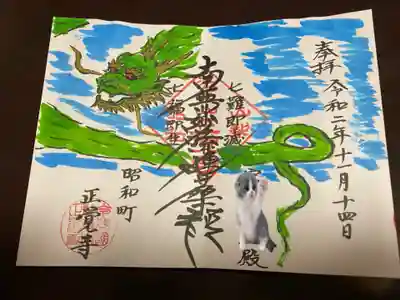 奉拝 令和二年十一月十四日
七難即滅
南無妙法蓮華経
七福即生
殿
昭和町
正覚寺